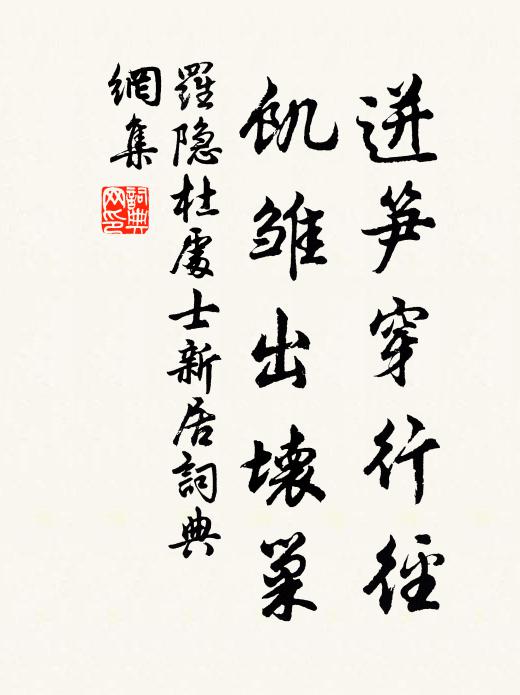 迸笋穿行徑
飢雏出壊巢
羅隐杜處士新居詞典
網集
詞典网印